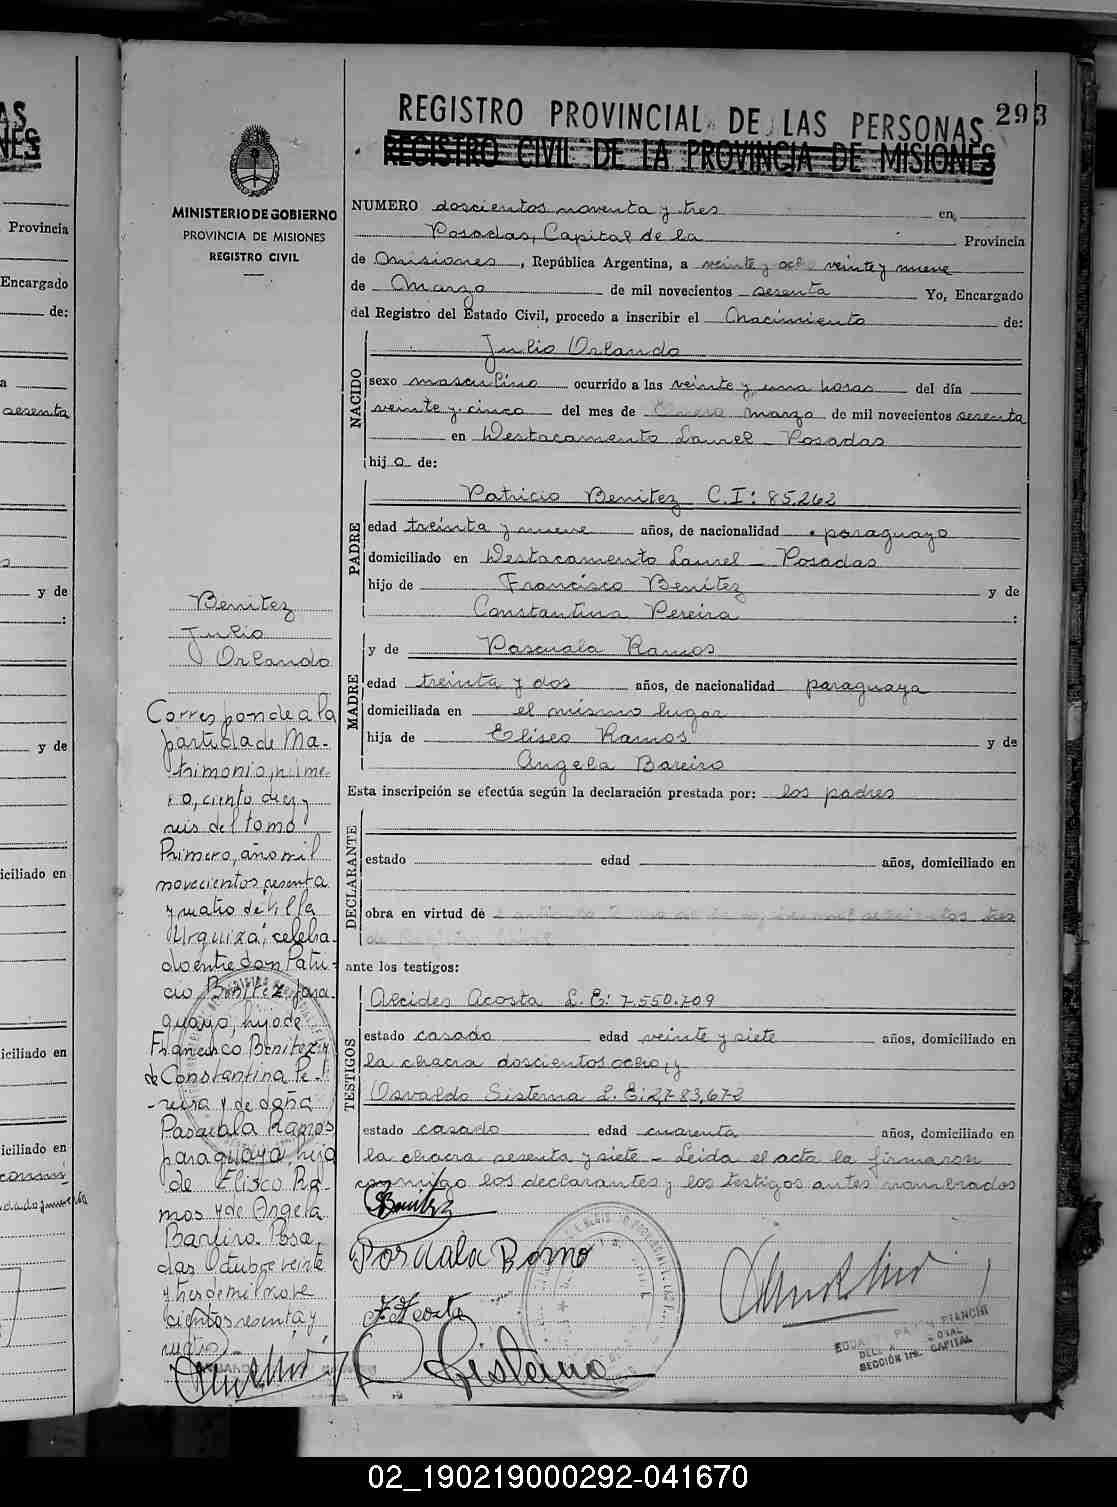 REGISTRO PROVINCIAL DE LAS PERSONAS
293
REGISTRO CIVIL DE LA PROVINCIA DE MISIONES
MINISTERIO DE GOBIERNO
PROVINCIA DE MISIONES
REGISTRO CIVIL
NUMERO doscientos noventa y tres en
Posadas, Capital de la Provincia
de Misiones, República Argentina, a veinte y ocho veinte y nueve
de Marzo de mil novecientos sesenta Yo, Encargado
del Registro del Estado Civil, procedo a inscribir el Nacimiento de:
NACIDO
Julio Orlando
sexo masculino ocurrido a las veinte y una horas del día
veinte y cinco del mes de Enero marzo de mil novecientos sesenta
en Destacamento Laurel - Posadas
hijo de:
PADRE
Patricio Benitez C.I: 85.262
edad treinta y nueve años, de nacionalidad paraguayo
domiciliado en Destacamento Laurel - Posadas
hijo de Francisco Benítez y de
Constantina Pereira :
MADRE
y de Pascuala Ramos
edad treinta y dos años, de nacionalidad paraguaya
domiciliada en el mismo lugar
hija de Eliseo Ramos y de
Angela Bareiro
Esta inscripción se efectúa según la declaración prestada por: los padres
DECLARANTE
estado edad años, domiciliado en
obra en virtud de
ante los testigos:
TESTIGOS
Alcides Acosta L.E: 7.550.709
estado casado edad veinte y siete años, domiciliado en
la chacra doscientos ocho, y
Osvaldo Sisterna L.E: 2,783,672
estado casado edad cuarenta años, domiciliado en
la chacra sesenta y siete - Leida el acta la firmaron
conmigo los declarantes y los testigos antes nombrados
Benitez
Acosta
Sisterna
SECCIÓN 1ra. CAPITAL
Benitez
Julio
Orlando
Corresponde a la
partida de Ma-
trimonio, núme-
ro, ciento diez y
seis del tomo
Primero, año mil
novecientos sesenta
y cuatro de Villa
Urquiza, celebra-
do entre don Patri-
cio Benitez, para-
guayo, hijo de
Francisco Benitez y
de Constantina Pe-
reira y de doña
Pascuala Ramos
paraguaya, hija
de Eliseo Ra-
mos y de Angela
Bareiro. Posa-
das Octubre veinte
y tres de mil nove
cientos sesenta y
cuatro.-
Provincia
Encargado
de:
sesenta
y de
:
y de
iciliado en
iciliado en
iciliado en
02_190219000292-041670